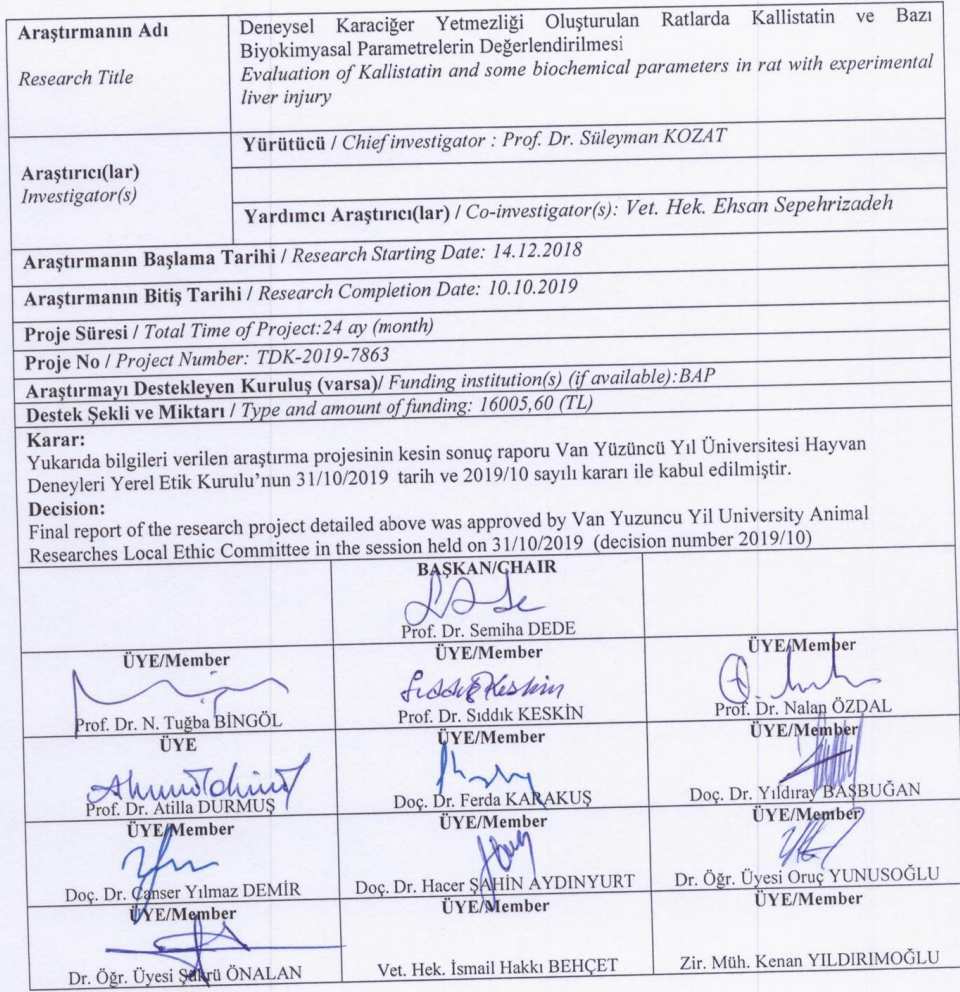 Araştırmanın Adı
Research Title
Deneysel Karaciğer Yetmezliği Oluşturulan Ratlarda Kallistatin ve Bazı
Biyokimyasal Parametrelerin Değerlendirilmesi
Evaluation of Kallistatin and some biochemical parameters in rat with experimental
liver injury
Araştırıcı(lar)
Investigator(s)
Yürütücü / Chief investigator : Prof. Dr. Süleyman KOZAT
Yardımcı Araştırıcı(lar) / Co-investigator(s): Vet. Hek. Ehsan Sepehrizadeh
Araştırmanın Başlama Tarihi / Research Starting Date: 14.12.2018
Araştırmanın Bitiş Tarihi / Research Completion Date: 10.10.2019
Proje Süresi / Total Time of Project:24 ay (month)
Proje No / Project Number: TDK-2019-7863
Araştırmayı Destekleyen Kuruluş (varsa)/ Funding institution(s) (if available):BAP
Destek Şekli ve Miktarı / Type and amount of funding: 16005,60 (TL)
Karar:
Yukarıda bilgileri verilen araştırma projesinin kesin sonuç raporu Van Yüzüncü Yıl Üniversitesi Hayvan
Deneyleri Yerel Etik Kurulu'nun 31/10/2019 tarih ve 2019/10 sayılı kararı ile kabul edilmiştir.
Decision:
Final report of the research project detailed above was approved by Van Yuzuncu Yil University Animal
Researches Local Ethic Committee in the session held on 31/10/2019 (decision number 2019/10)
BAŞKAN/CHAIR
Prof. Dr. Semiha DEDE
ÜYE/Member
Prof. Dr. N. Tuğba BİNGÖL
ÜYE/Member
Sıddık Keskin
Prof. Dr. Sıddık KESKİN
ÜYE/Member
Prof. Dr. Nalan ÖZDAL
ÜYE
Prof. Dr. Atilla DURMUŞ
ÜYE/Member
Doç. Dr. Ferda KARAKUŞ
ÜYE/Member
Doç. Dr. Yıldıray BAŞBUĞAN
ÜYE/Member
Doç. Dr. Canser Yılmaz DEMİR
ÜYE/Member
Doç. Dr. Hacer ŞAHİN AYDINYURT
ÜYE/Member
Dr. Öğr. Üyesi Oruç YUNUSOĞLU
ÜYE/Member
Dr. Öğr. Üyesi Şükrü ÖNALAN
ÜYE/Member
Vet. Hek. İsmail Hakkı BEHÇET
ÜYE/Member
Zir. Müh. Kenan YILDIRIMOĞLU